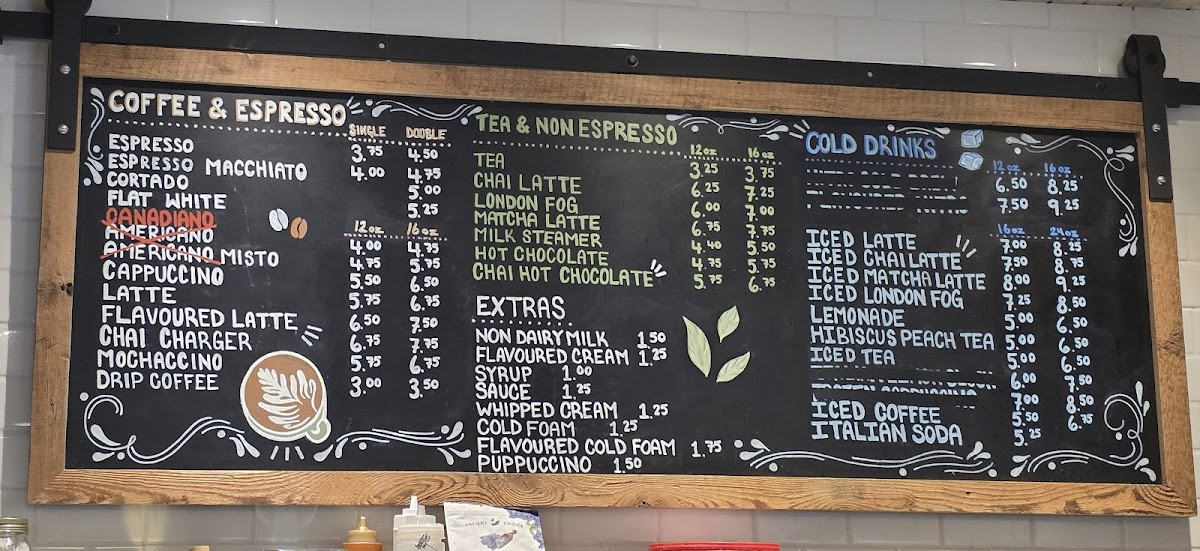 COFFEE & ESPRESSO
SINGLE DOUBLE
ESPRESSO 3.75 4.50
ESPRESSO MACCHIATO 4.00 4.75
CORTADO 5.00
FLAT WHITE 5.25
CANADIANO 12oz 16oz
AMERICANO 4.00 4.75
AMERICANO MISTO 4.75 5.75
CAPPUCCINO 5.50 6.50
LATTE 5.75 6.75
FLAVOURED LATTE 6.50 7.50
CHAI CHARGER 6.75 7.75
MOCHACCINO 5.75 6.75
DRIP COFFEE 3.00 3.50
TEA & NON ESPRESSO
12oz 16oz
TEA 3.25 3.75
CHAI LATTE 6.25 7.25
LONDON FOG 6.00 7.00
MATCHA LATTE 6.75 7.75
MILK STEAMER 4.40 5.50
HOT CHOCOLATE 4.75 5.75
CHAI HOT CHOCOLATE 5.75 6.75
EXTRAS
NON DAIRY MILK 1.50
FLAVOURED CREAM 1.25
SYRUP 1.00
SAUCE 1.25
WHIPPED CREAM 1.25
COLD FOAM 1.25
FLAVOURED COLD FOAM 1.75
PUPPUCCINO 1.50
COLD DRINKS
12oz 16oz
6.50 8.25
7.50 9.25
16oz 24oz
ICED LATTE 7.00 8.25
ICED CHAI LATTE 7.50 8.75
ICED MATCHA LATTE 8.00 9.25
ICED LONDON FOG 7.25 8.50
LEMONADE 5.00 6.50
HIBISCUS PEACH TEA 5.00 6.50
ICED TEA 5.00 6.50
6.00 7.50
7.00 8.50
ICED COFFEE 5.50 6.75
ITALIAN SODA 5.25
ANCIENT CHOICE